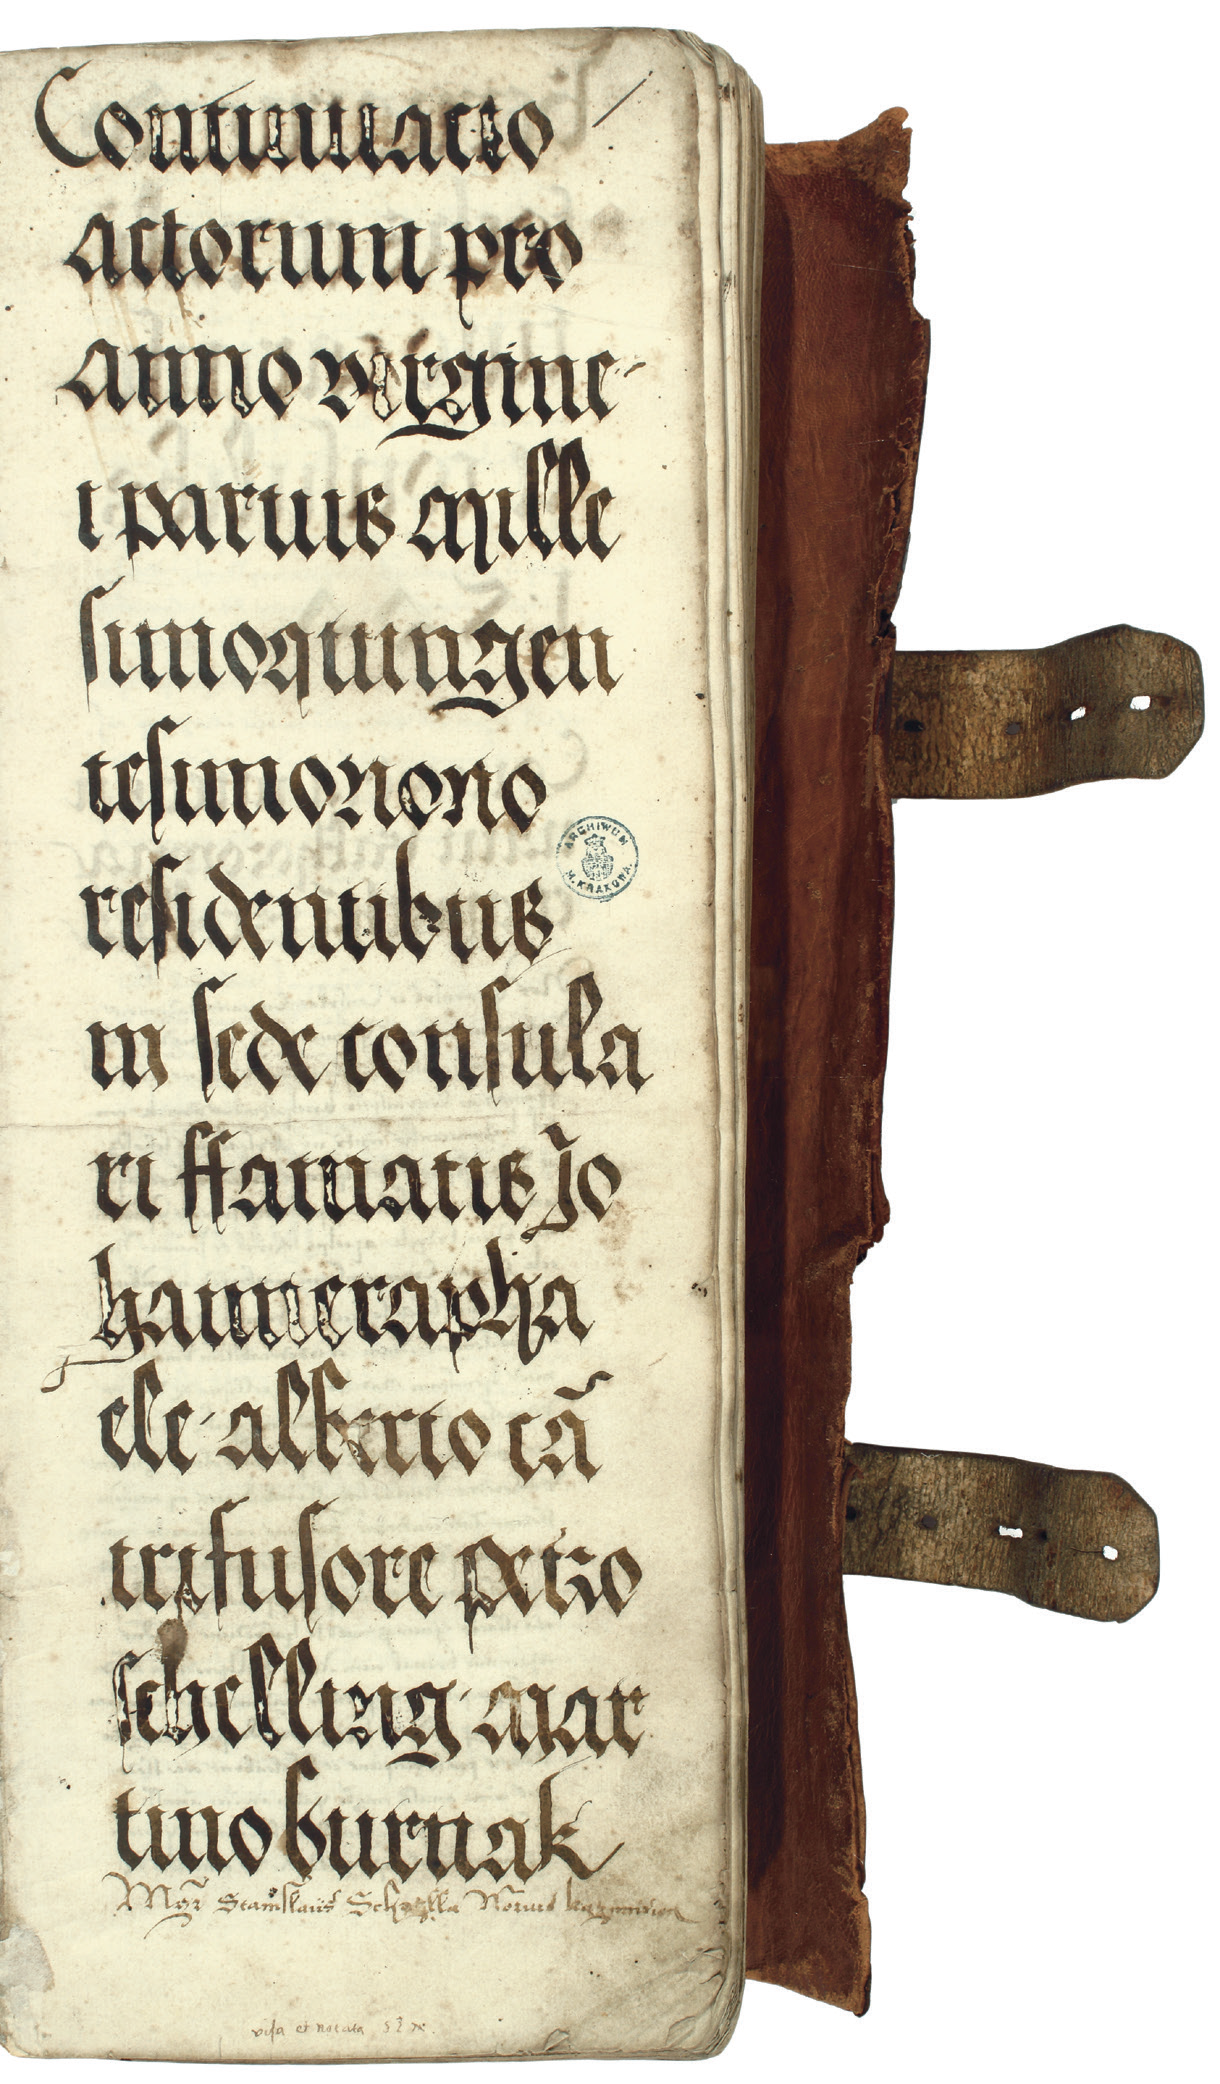 Continuacio
actorum pro
anno virgine
i partus Mille
simoquingen
tesimonono
residentibus
in sede consula
ri ffamatis Jo
hannerapha
ele alberto cā
trifusore petro
schelling Mar
tino burnak
Mgr Stanislaus Notarius
visa et notata
ARCHIWUM
M. KRAKOWA